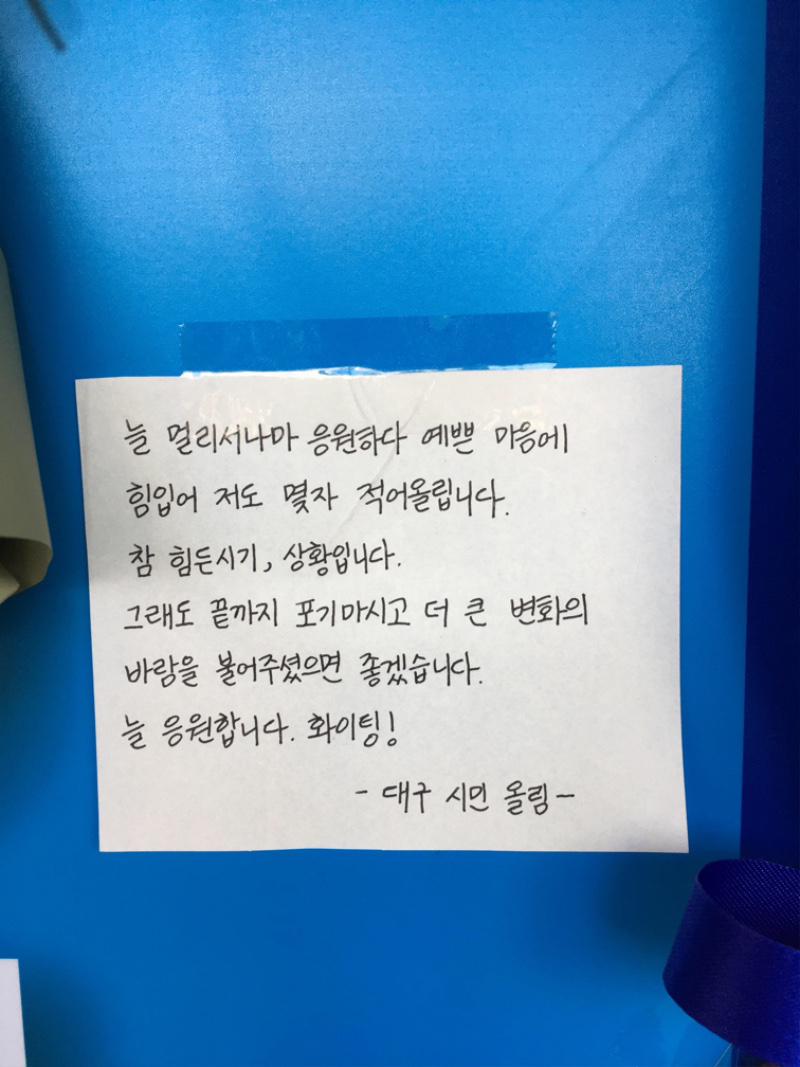 늘 멀리서나마 응원하다 예쁜 마음에
힘입어 저도 몇자 적어올립니다.
참 힘든시기, 상황입니다.
그래도 끝까지 포기마시고 더 큰 변화의
바람을 불어주셨으면 좋겠습니다.
늘 응원합니다. 화이팅!
- 대구 시민 올림 -